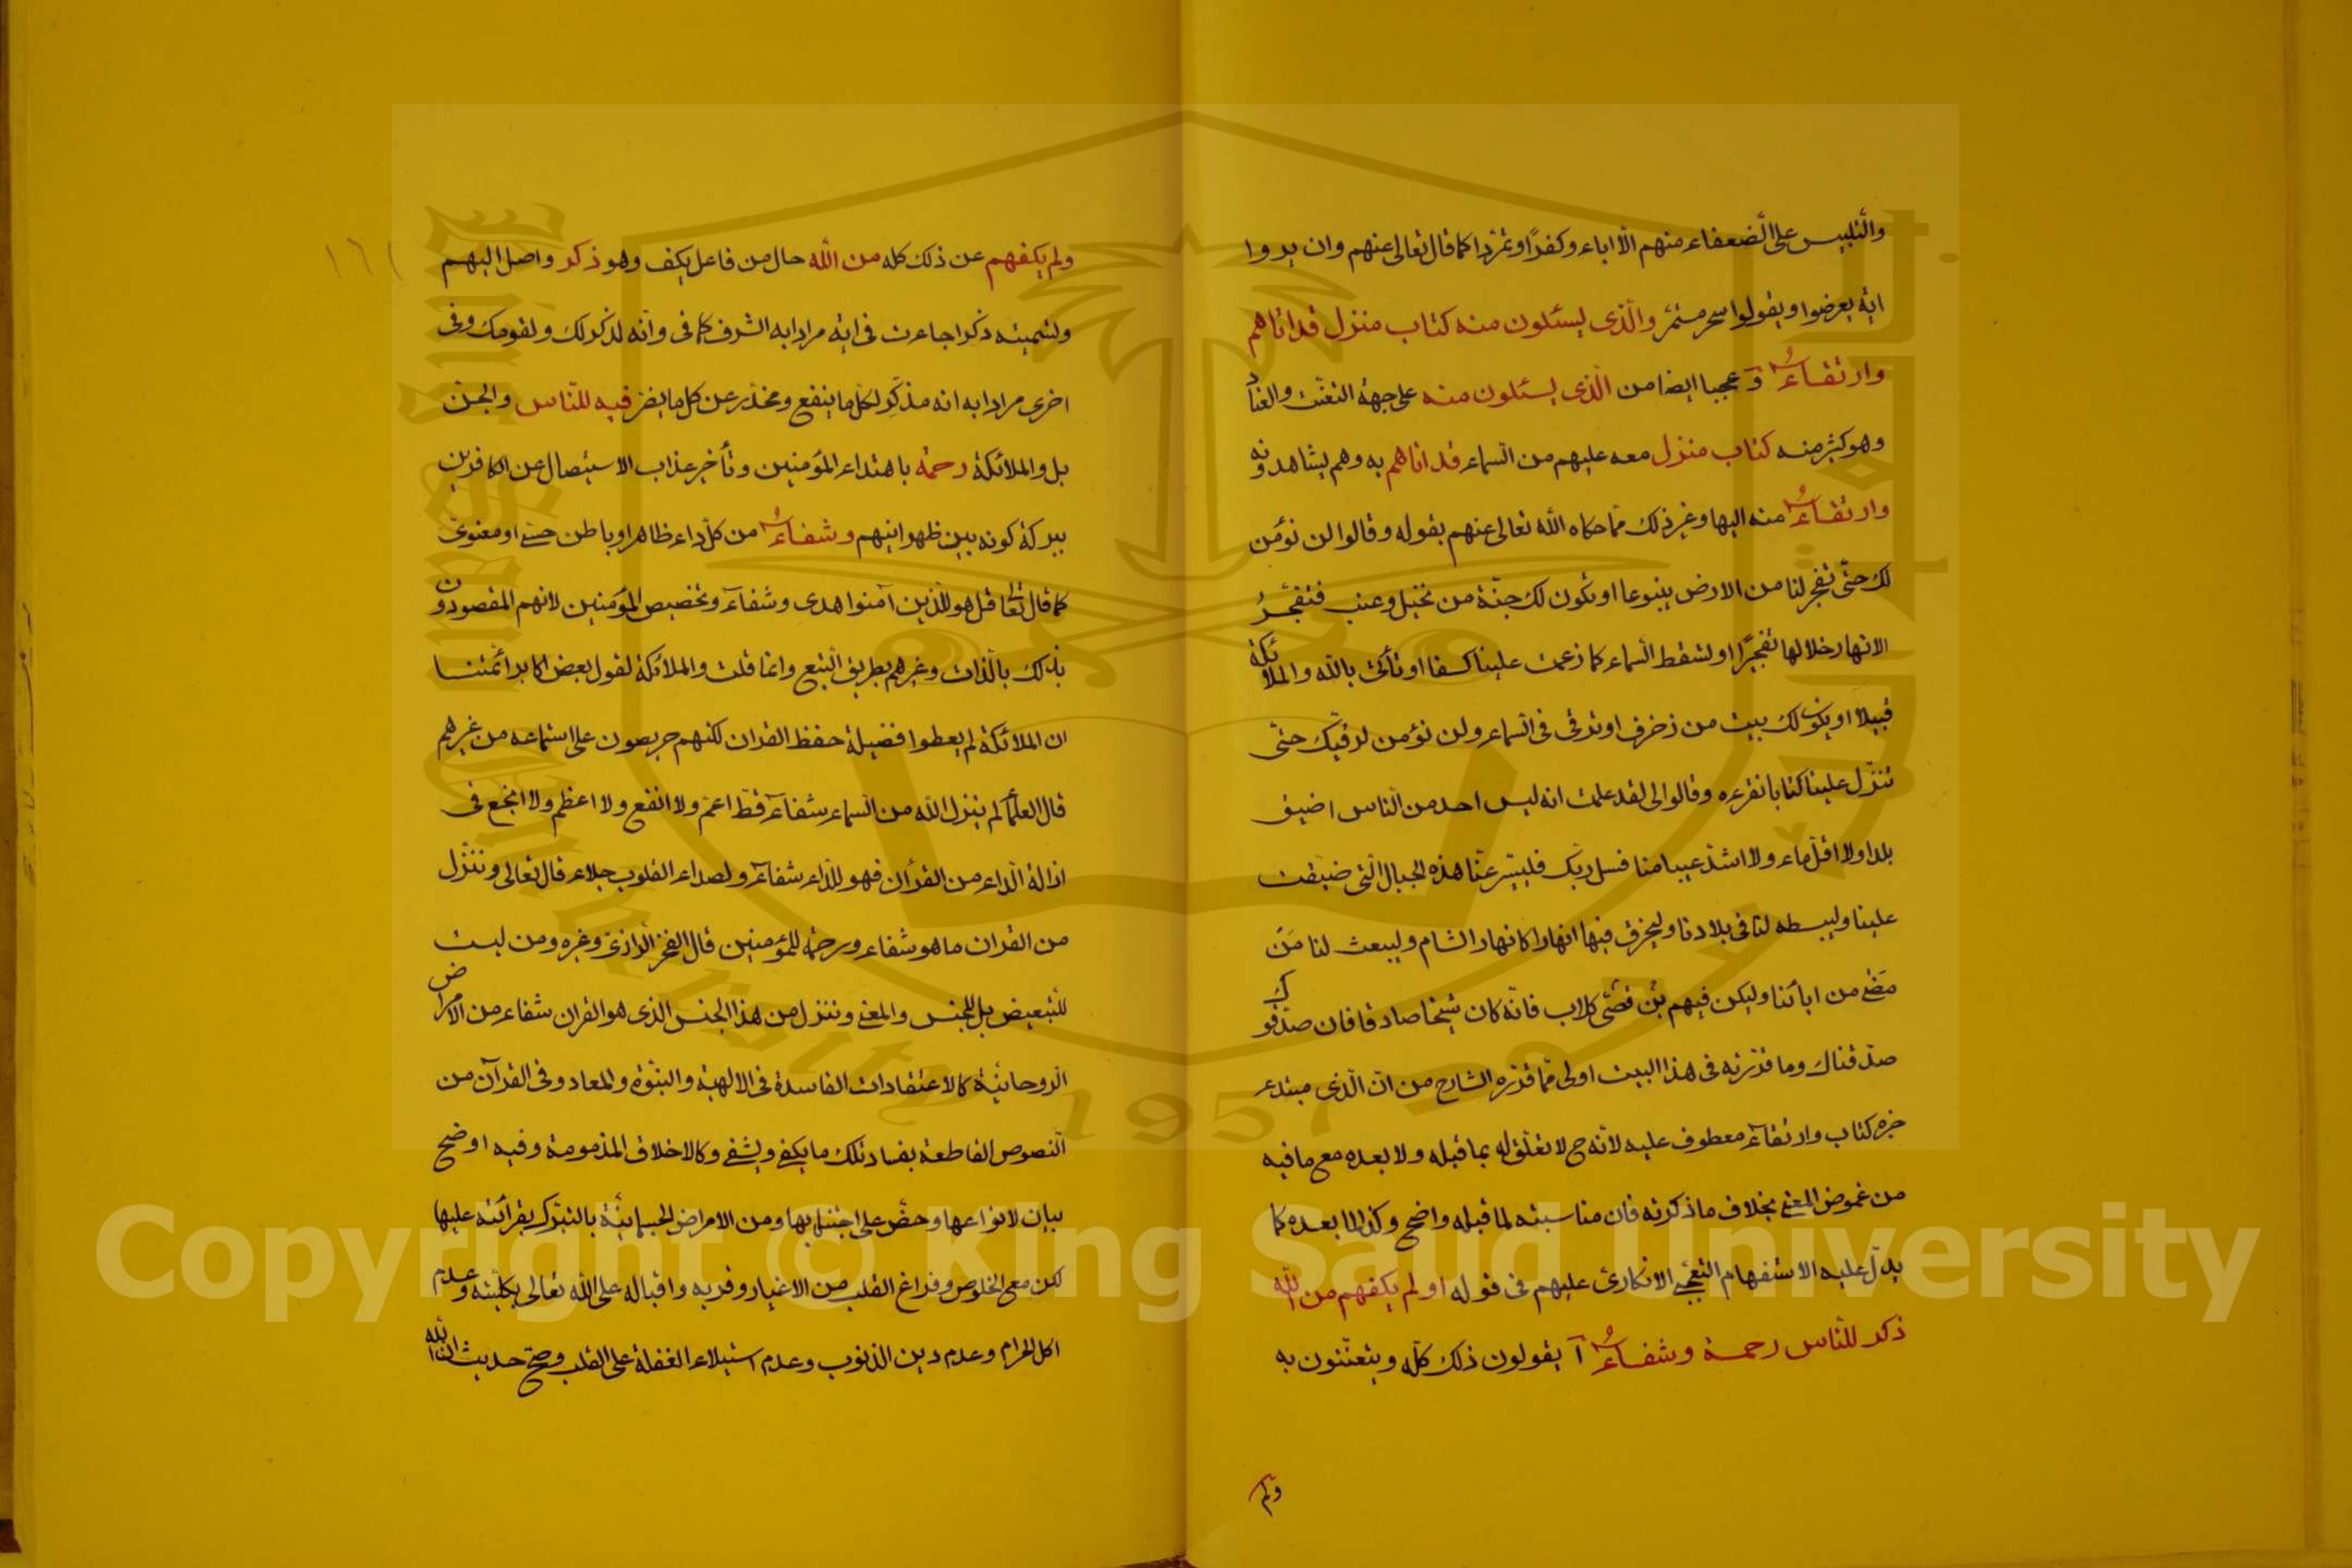 والتلبيس على الضعفاء منهم الا اباء وكفرا وتمردا كما قال تعالى عنهم وان يروا
اية يعرضوا ويقولوا سحر مستمر والذى يسئلون منه كتاب منزل قد اتاهم
وارتقاء و عجبا ايضا من الذى يسئلون منه على جهة التعنت والعناد
وهو كثير منه كتاب منزل معه عليهم من السماء قد اتاهم به وهم يشاهدونه
وارتقاء منه اليها وغير ذلك مما حكاه الله تعالى عنهم بقوله وقالوا لن نؤمن
لك حتى تفجر لنا من الارض ينبوعا او تكون لك جنة من نخيل وعنب فتفجر
الانهار خلالها تفجيرا او تسقط السماء كما زعمت علينا كسفا او تأتى بالله والملائكة
قبيلا او يكون لك بيت من زخرف او ترقى فى السماء ولن نؤمن لرقيك حتى
تنزل علينا كتابا نقرءه وقالوا لى لقد علمت انه ليس احد من الناس اضيق
بلدا ولا اقل ماء ولا اشد عيبا منا فسل ربك فليسير عنا هذه الجبال التى ضيقت
علينا وليبسطه لنا فى بلادنا وليخرق فيها انهارا كانهار الشام وليبعث لنا من
مضى من ابائنا وليكن فيهم بن قصى كلاب فانه كان شيخا صادقا فان صدقوك
صدقناك وما قررته فى هذا البيت اولى مما قرره الشارح من ان الذى مبتدء
خبره كتاب وارتقاء معطوف عليه لانه ح لا تعلق له بما قبله ولا بعده مع ما فيه
من غموض المعنى بخلاف ما ذكرته فان مناسبته لما قبله واضح وكذا لما بعده كما
يدل عليه الاستفهام التعجبى الانكارى عليهم فى قوله او لم يكفهم من الله
ذكر للناس رحمة وشفاء آ يقولون ذلك كله ويتعنتون به
ولم
١٦١
ولم يكفهم عن ذلك كله من الله حال من فاعل يكف وهو ذكر واصل اليهم
وتسميته ذكرا جاءت فى اية مرادا به الشرف كما فى وانه لذكر لك ولقومك وفى
اخرى مرادا به انه مذكر لكل ما ينفع ومحذر عن كل ما يضر فيه للناس والجن
بل والملائكة رحمة باهتداء المؤمنين وتأخير عذاب الاستيصال عن الكافرين
ببركة كونه بين ظهرانيهم وشفاء من كل داء ظاهر او باطن حسى او معنوى
كما قال تعالى قل هو للذين آمنوا هدى وشفاء وتخصيص المؤمنين لانهم المقصودون
بذلك بالذات وغيرهم بطريق التبع وانما قلت والملائكة لقول بعض اكابر ائمتنا
ان الملائكة لم يعطوا فضيلة حفظ القران لكنهم حريصون على استماعه من غيرهم
قال العلماء لم ينزل الله من السماء شفاء قط اعم ولا انفع ولا اعظم ولا انجع فى
ازالة الداء من القرأن فهو للداء شفاء ولصداء القلوب جلاء قال تعالى وننزل
من القران ما هو شفاء ورحمة للمؤمنين قال الفخر الرازى وغيره ومن ليست
للتبعيض بل للجنس والمعنى وننزل من هذا الجنس الذى هو القران شفاء من الامراض
الروحانية كالاعتقادات الفاسدة فى الالهية والنبوة والمعاد وفى القرآن من
النصوص القاطعة بفساد تلك ما يكفى ويشفى وكالاخلاق المذمومة وفيه اوضح
بيان لانواعها وحض على اجتنابها ومن الامراض الجسمانية بالتبرك بقرائته عليها
لكن مع الخلوص وفراغ القلب من الاغيار وقربه واقباله على الله تعالى بكليته وعدم
اكل الحرام وعدم رين الذنوب وعدم استيلاء الغفلة على القلب وصح حديث ان الله
Copyright © King Saud University
King Saud University
1957